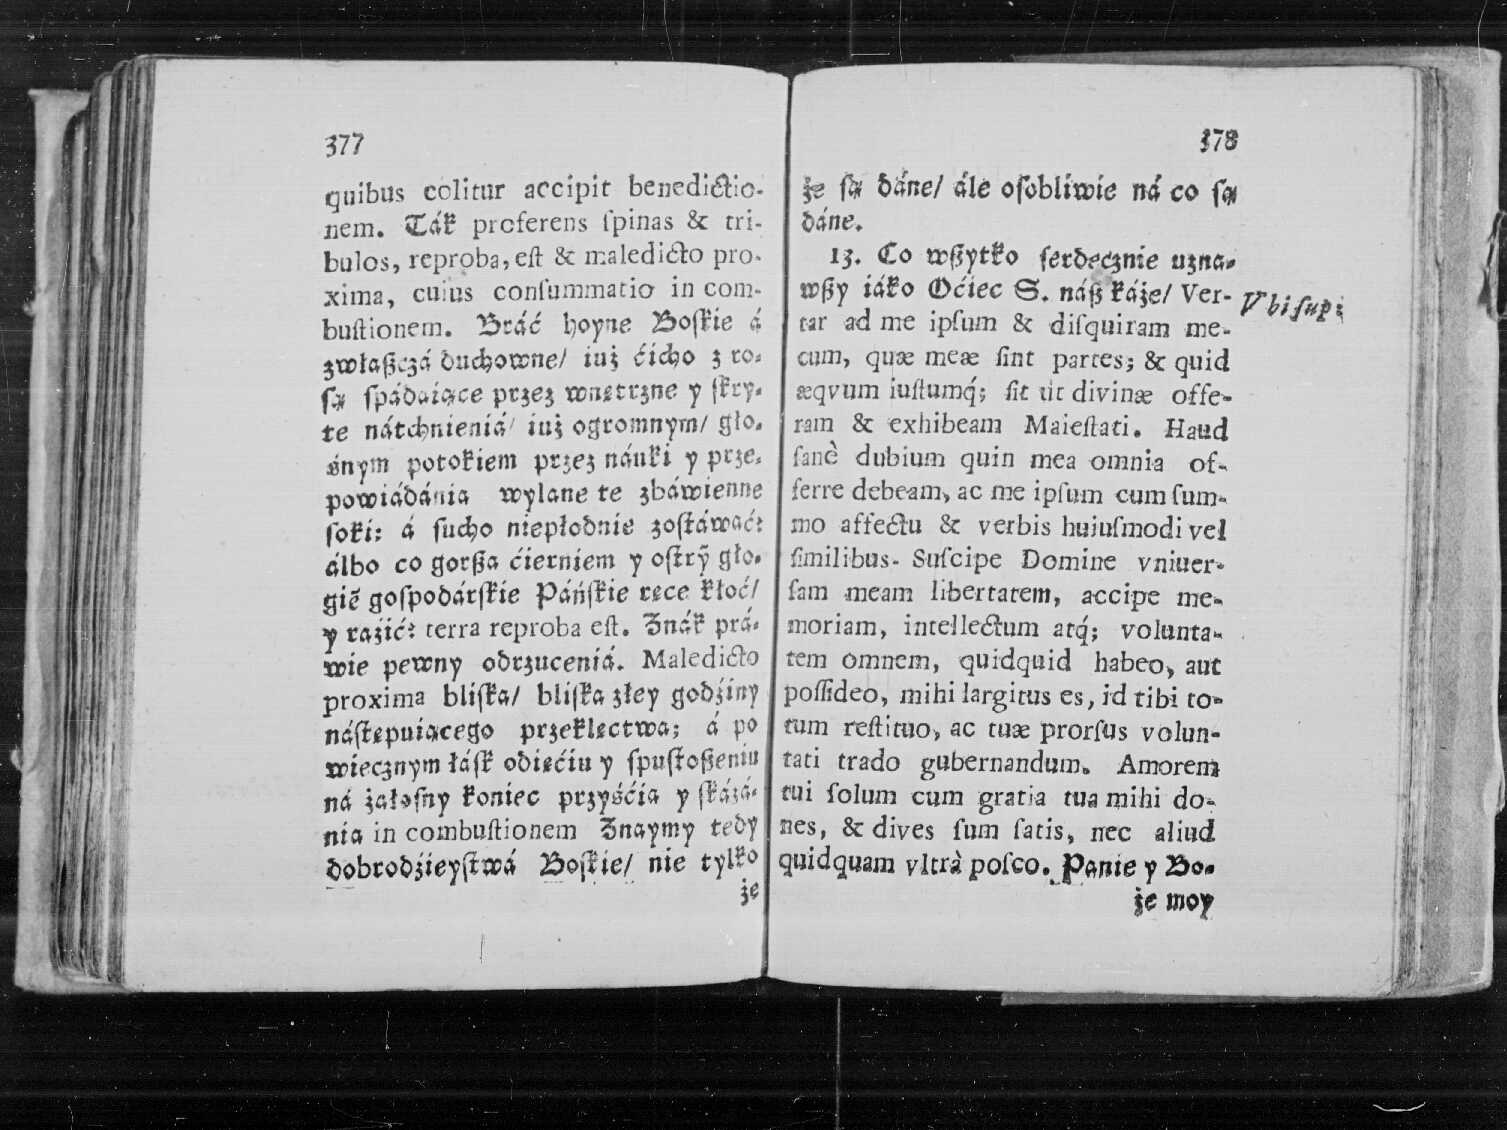 377
quibus colitur accipit benedictio-
nem. Ták proferens ſpinas & tri-
bulos, reproba, eſt & maledicto pro-
xima, cuius conſummatio in com-
buſtionem. Bráć hoyne Boſkie á
zwłaßczá duchowne/ iuż ćicho z ro-
ſą ſpádaiące przez wnętrzne y ſkry-
te nátchnieniá/ iuż ogromnym/ gło-
śnym potokiem przez náuki y prze-
powiádánia wylane te zbáwienne
ſoki: á ſucho niepłodnie zoſtáwáć:
álbo co gorßa ćierniem y oſtrỹ gło-
giẽ goſpodárſkie Páńſkie ręce kłoć/
y raźić: terra reproba eſt. Znák prá-
wie pewny odrzuceniá. Maledicto
proxima bliſka/ bliſka złey godźiny
náſtępuiącego przeklęctwa; á po
wiecznym łáſk odięćiu y ſpuſtoßeniu
ná żałoſny koniec przyśćia y ſkázá-
nia in combuſtionem Znaymy tedy
dobrodźieyſtwá Boſkie/ nie tylko
że
378
że ſą dáne/ ále oſobliwie ná co ſą
dáne.
13. Co wßytko ſerdecznie uzna-
wßy iáko Oćiec S. náß káże/ Ver-
tar ad me ipſum & diſquiram me-
cum, quæ meæ ſint partes; & quid
æqvum iuſtumq́; ſit ut divinæ offe-
ram & exhibeam Maieſtati. Haud
ſanè dubium quin mea omnia of-
ferre debeam, ac me ipſum cum ſum-
mo affectu & verbis huiuſmodi vel
ſimilibus. Suſcipe Domine vniuer-
ſam meam libertatem, accipe me-
moriam, intellectum atq́; volunta-
tem omnem, quidquid habeo, aut
poſſideo, mihi largitus es, id tibi to-
tum reſtituo, ac tuæ prorſus volun-
tati trado gubernandum. Amorem
tui ſolum cum gratia tua mihi do-
nes, & dives ſum ſatis, nec aliud
quidquam vltrà poſco. Panie y Bo-
że moy
Vbi ſup: